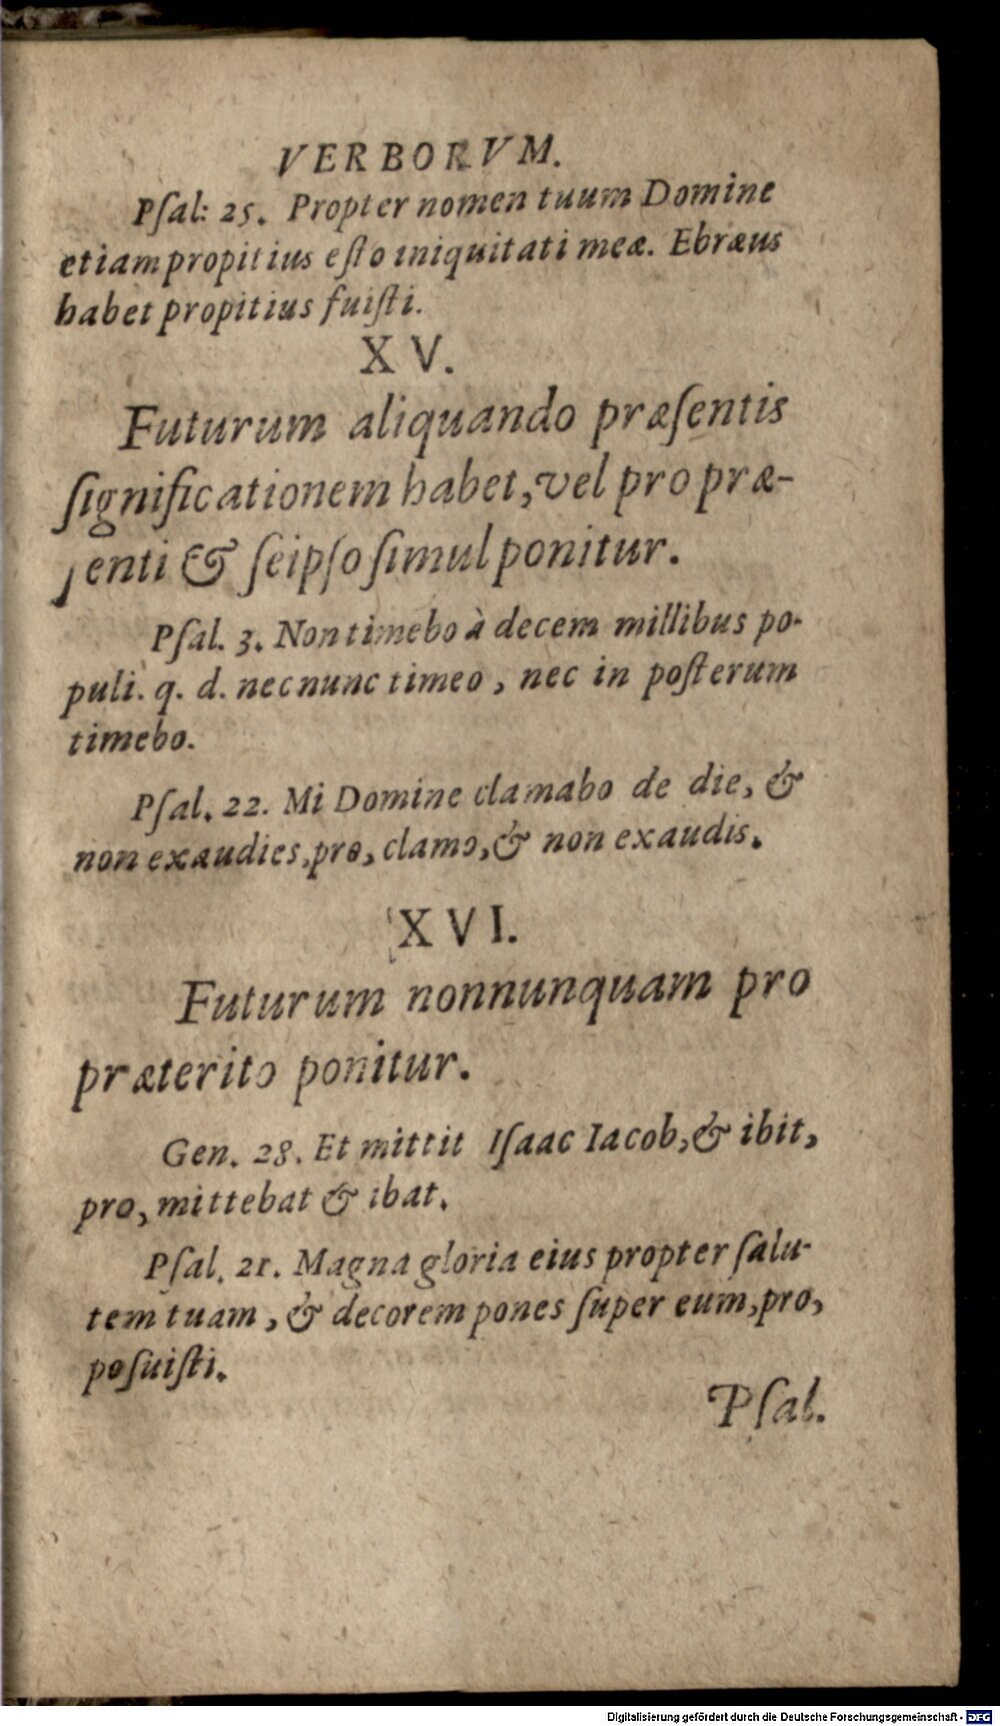 VERBORVM.
Pſal: 25. Propter nomen tuum Domine
etiam propitius eſto iniquitati meæ. Ebræus
habet propitius fuiſti.
XV.
Futurum aliquando præſentis
ſignificationem habet, vel pro præ-
ſenti & ſeipſo ſimul ponitur.
Pſal. 3. Non timebo à decem millibus po-
puli. q. d. nec nunc timeo, nec in poſterum
timebo.
Pſal. 22. Mi Domine clamabo de die, &
non exaudies, pro, clamo, & non exaudis.
XVI.
Futurum nonnunquam pro
præterito ponitur.
Gen. 28. Et mittit Iſaac Iacob, & ibit,
pro, mittebat & ibat.
Pſal. 21. Magna gloria eius propter ſalu-
tem tuam, & decorem pones ſuper eum, pro,
poſuiſti.
Pſal.
Digitalisierung gefördert durch die Deutsche Forschungsgemeinschaft - DFG